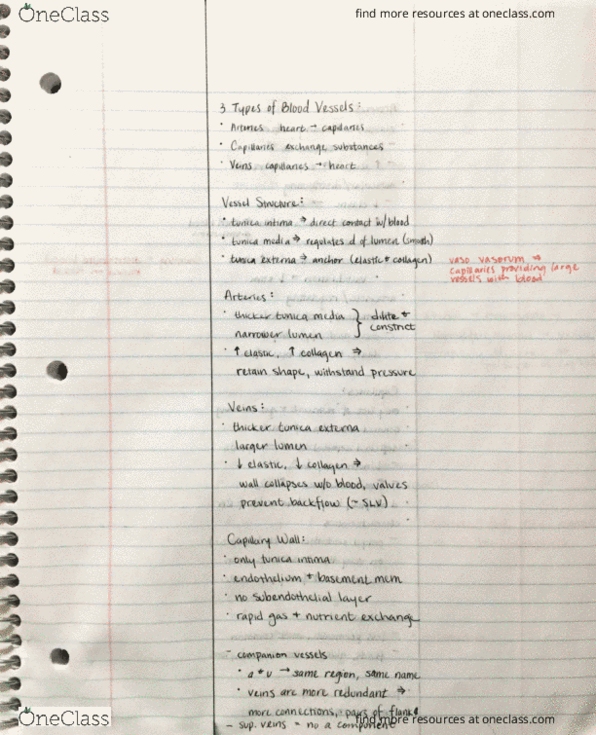 OneClass
find more resources at oneclass.com
3 Types of Blood Vessels:
· Arteries heart → capillaries
· Capillaries exchange substances
· Veins capillaries → heart
Vessel Structure:
· tunica intima → direct contact w/blood
· tunica media → regulates d of lumen (smooth)
· tunica externa → anchor (elastic + collagen)
vaso vasorum →
capillaries providing large
vessels with blood
Arteries:
· thicker tunica media } dilate +
narrower lumen constrict
· ↑ elastic, ↑ collagen →
retain shape, withstand pressure
Veins:
· thicker tunica externa
larger lumen
· ↓ elastic, ↓ collagen →
wall collapses w/o blood, valves
prevent backflow (- SLV)
Capillary Wall:
· only tunica intima
· endothelium + basement mem
· no subendothelial layer
· rapid gas + nutrient exchange
- companion vessels
· a + v → same region, same name
· veins are more redundant →
more connections, pairs of flank
- sup. veins = no a component
OneClass
find more resources at oneclass.com